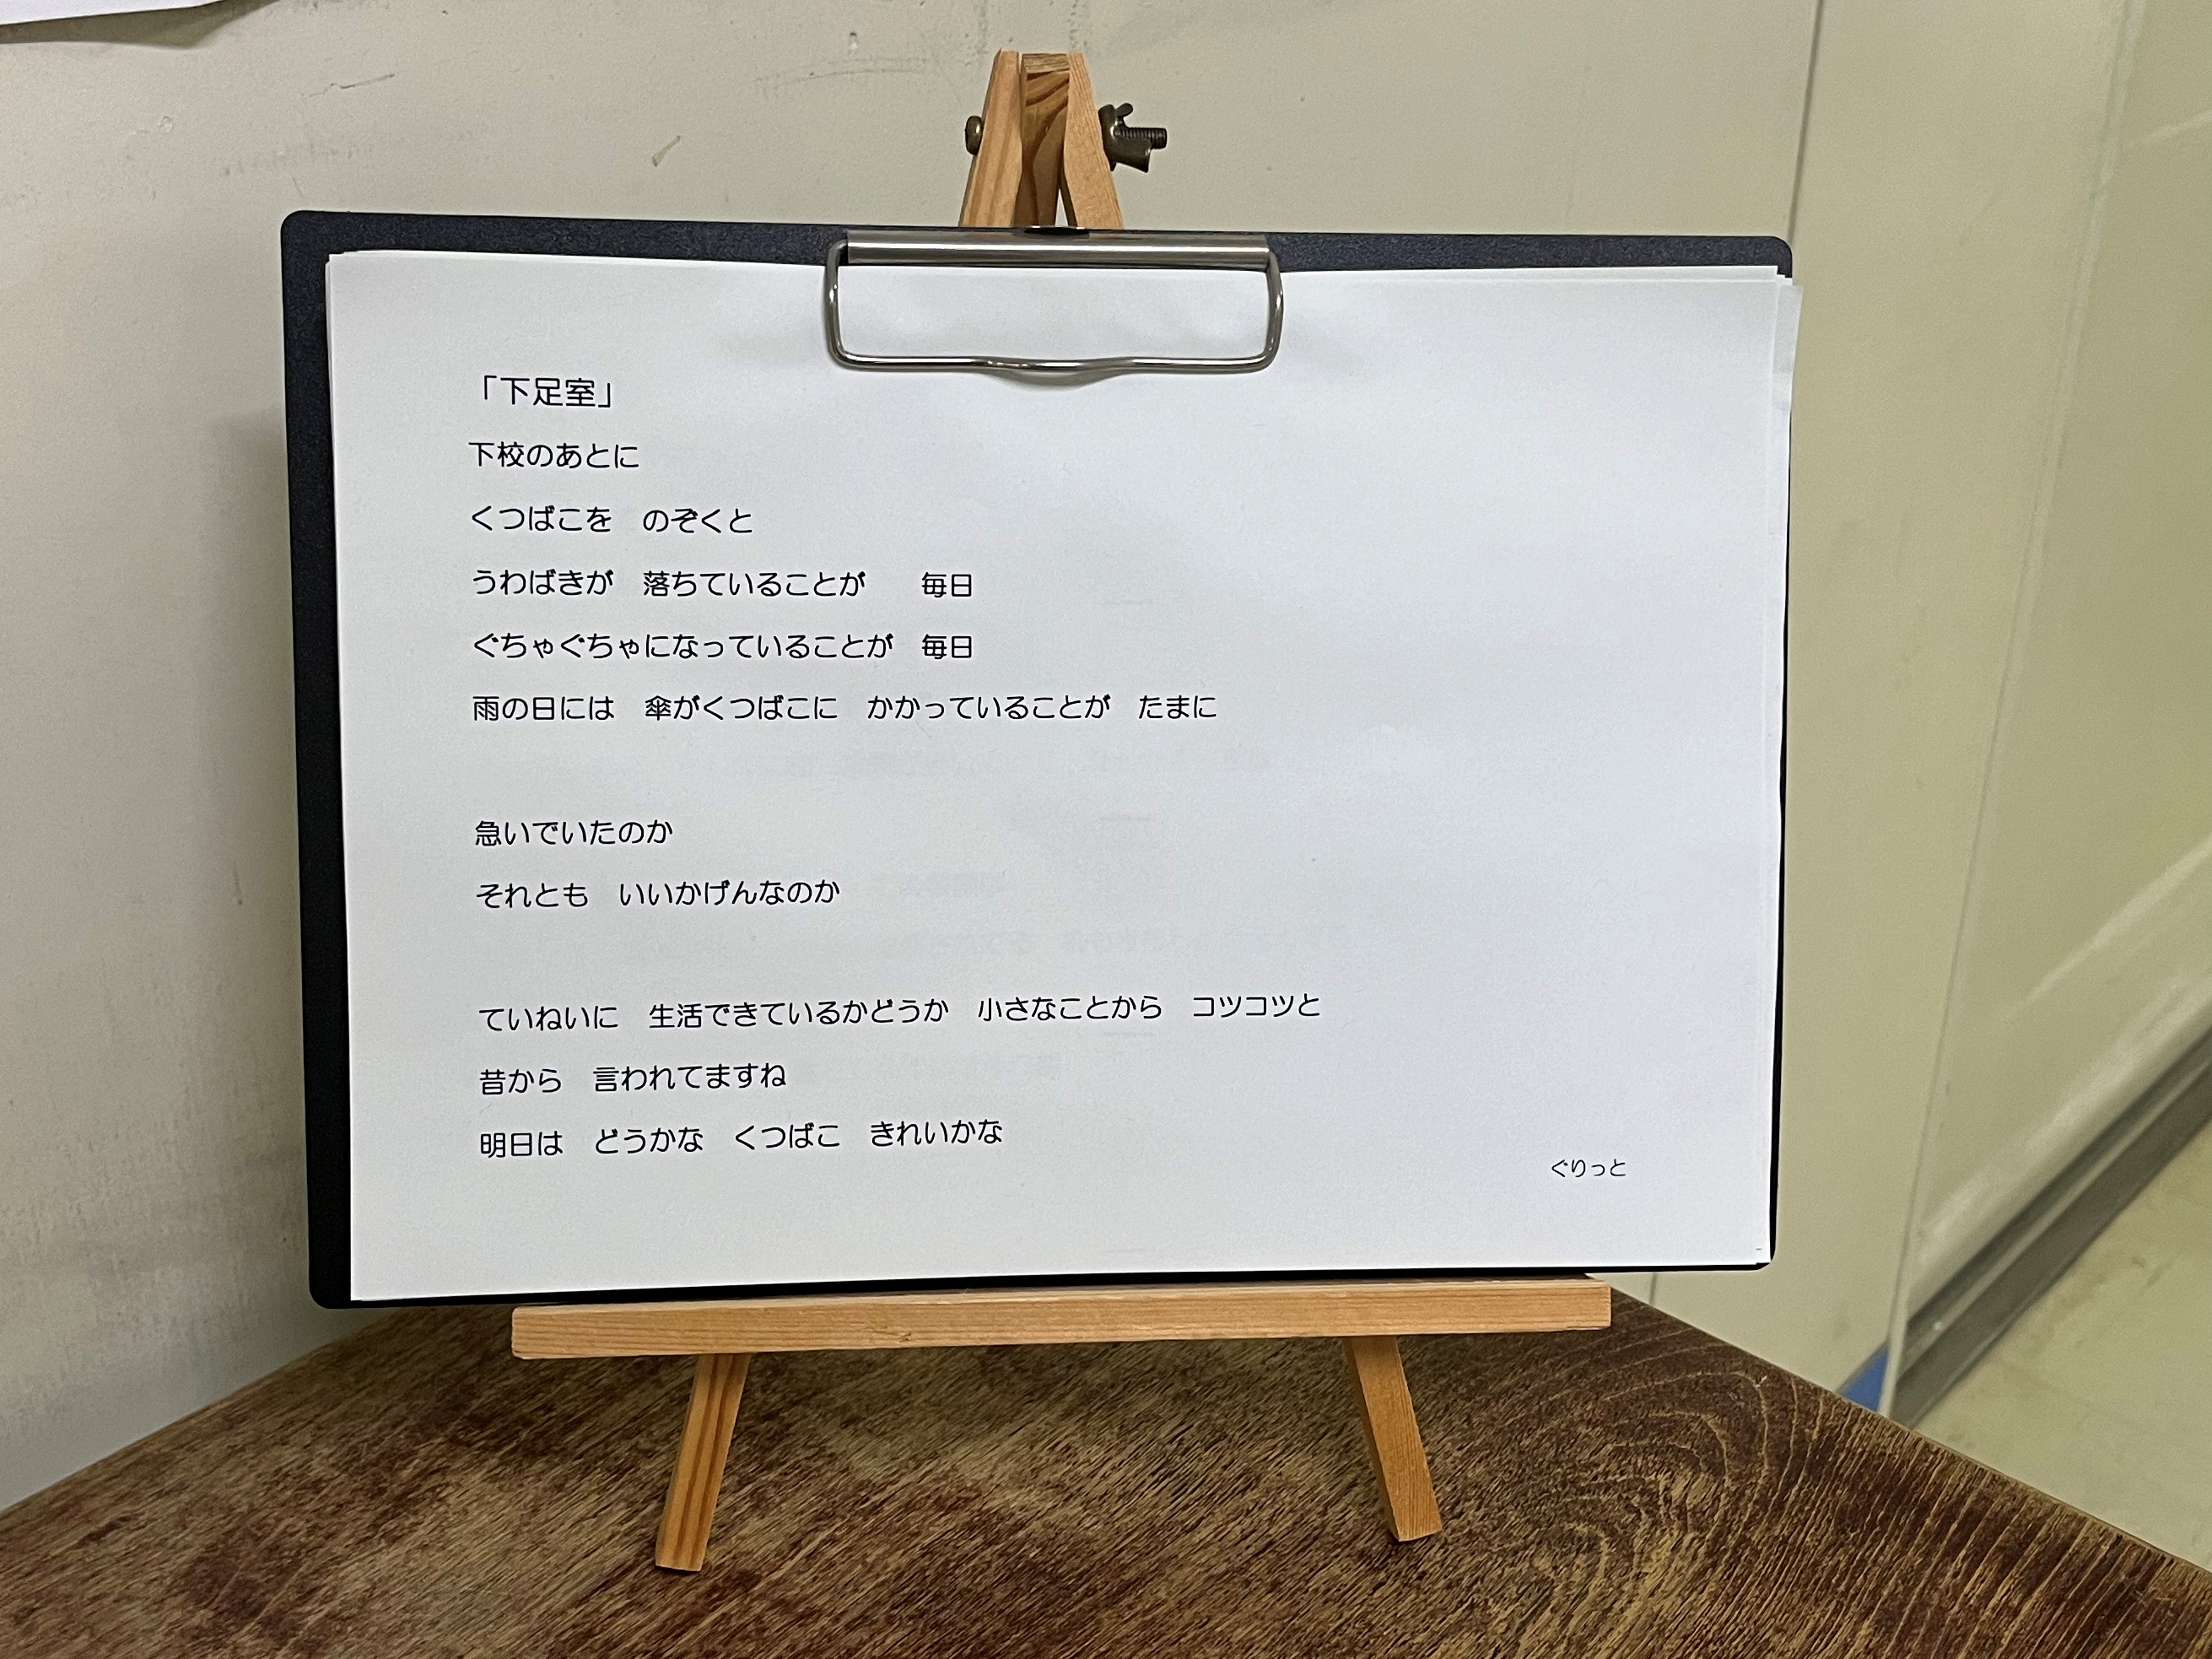 「下足室」
下校のあとに
くつばこを　のぞくと
うわばきが　落ちていることが　　毎日
ぐちゃぐちゃになっていることが　毎日
雨の日には　傘がくつばこに　かかっていることが　たまに
急いでいたのか
それとも　いいかげんなのか
ていねいに　生活できているかどうか　小さなことから　コツコツと
昔から　言われてますね
明日は　どうかな　くつばこ　きれいかな
ぐりっと